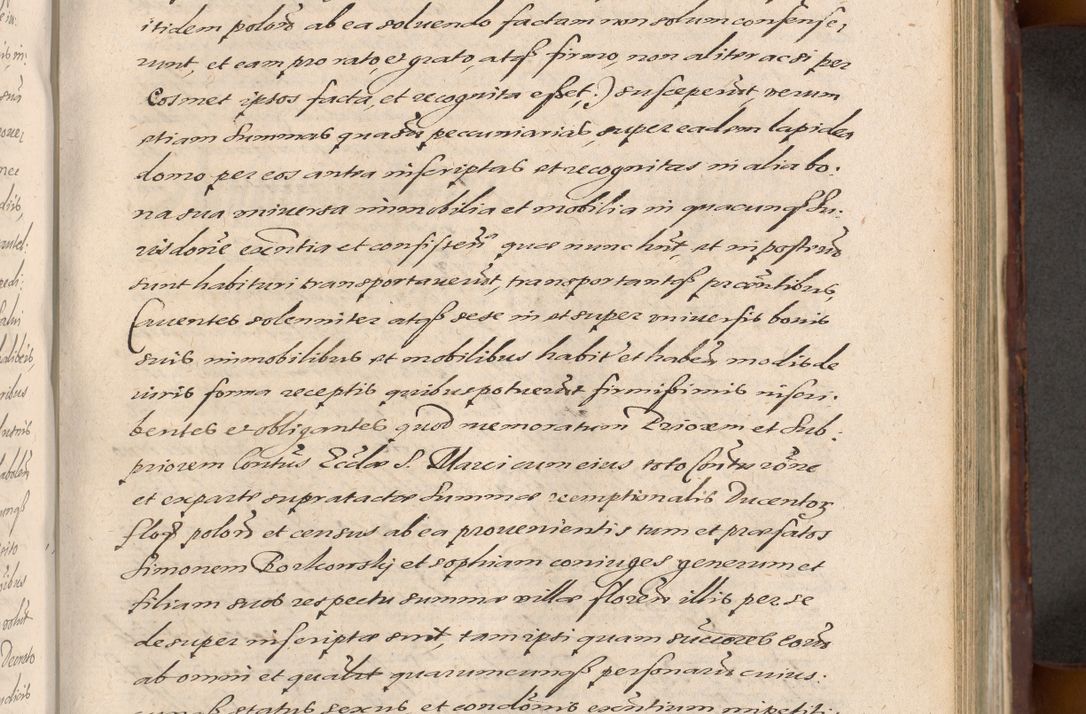 itidem polon̄ ab ea soluendo factam non solum consense,
runt, et eam pro rato, et grato, atq̄ firmo, non aliter ac si per
Eosmet ipsos facta, et recognita esset:) susceperūt, verum
etiam Summas quasūs peccuniarias, super eadem lapidea
domo per eos antea inscriptas et recognitas in alia bo:
na sua vniuersa immobilia et mobilia in quacunq̄ Iu:
risdōne exn̄tia et consisten̄ quæ nunc hn̄t, et in posterū
sunt habituri transportauerūt, transportantq̄ præsn̄tibus,
Cauentes solenniter atq̄ sese in et super vniuersis bonis
suis immobilibus et mobilibus habit̄ et haben̄ modis de
iuris forma receptis quibus potuerūt firmissimis inscri:
bentes et obligantes quod memoratum Priorem et Sub:
priorem Contūs Eccl̄æ S. Marci cum eius toto Contu rōne
et ex parte supratactæ Summæ reemptionalis Ducentor̄
flor̄ polon̄ et census ab ea prouenientis tum et præfatos
Simonem Borkowskj et sophiam coniuges generum et
filiam suos respectu summæ millæ floren̄ illis per se
desuper inscriptæ sint, tam ipsi quam succores eorū
ab omni et qualūt quarumcunq̄ personarū cuius:
cunq̄ status sexus et condōnis exn̄tium impetiti